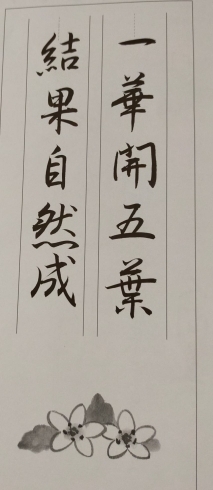 一華開五葉
結果自然成